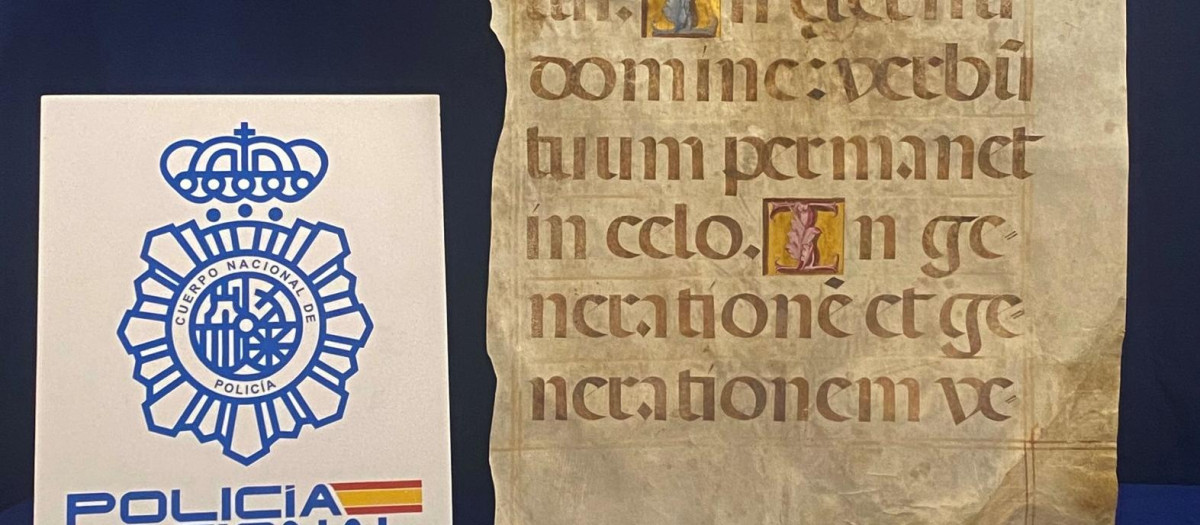 CUERPO NACIONAL DE
POLICÍA
POLICÍA
tur. In eternū
domine: verbū
tuum permanet
in celo. In ge⸗
neratione᷒ et ge⸗
nerationem ve⸗